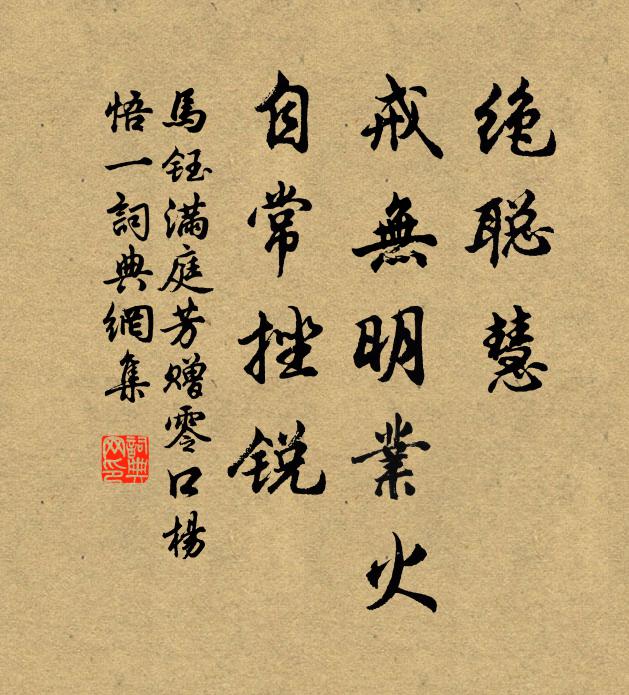 绝聪慧
戒無明業火
自常挫锐
馬鈺滿庭芳赠零口楊
悟一詞典網集
詞典
网印